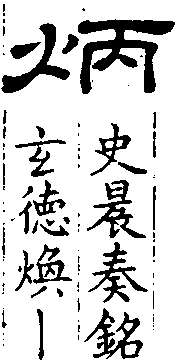 炳
史晨奏銘
玄德煥丨